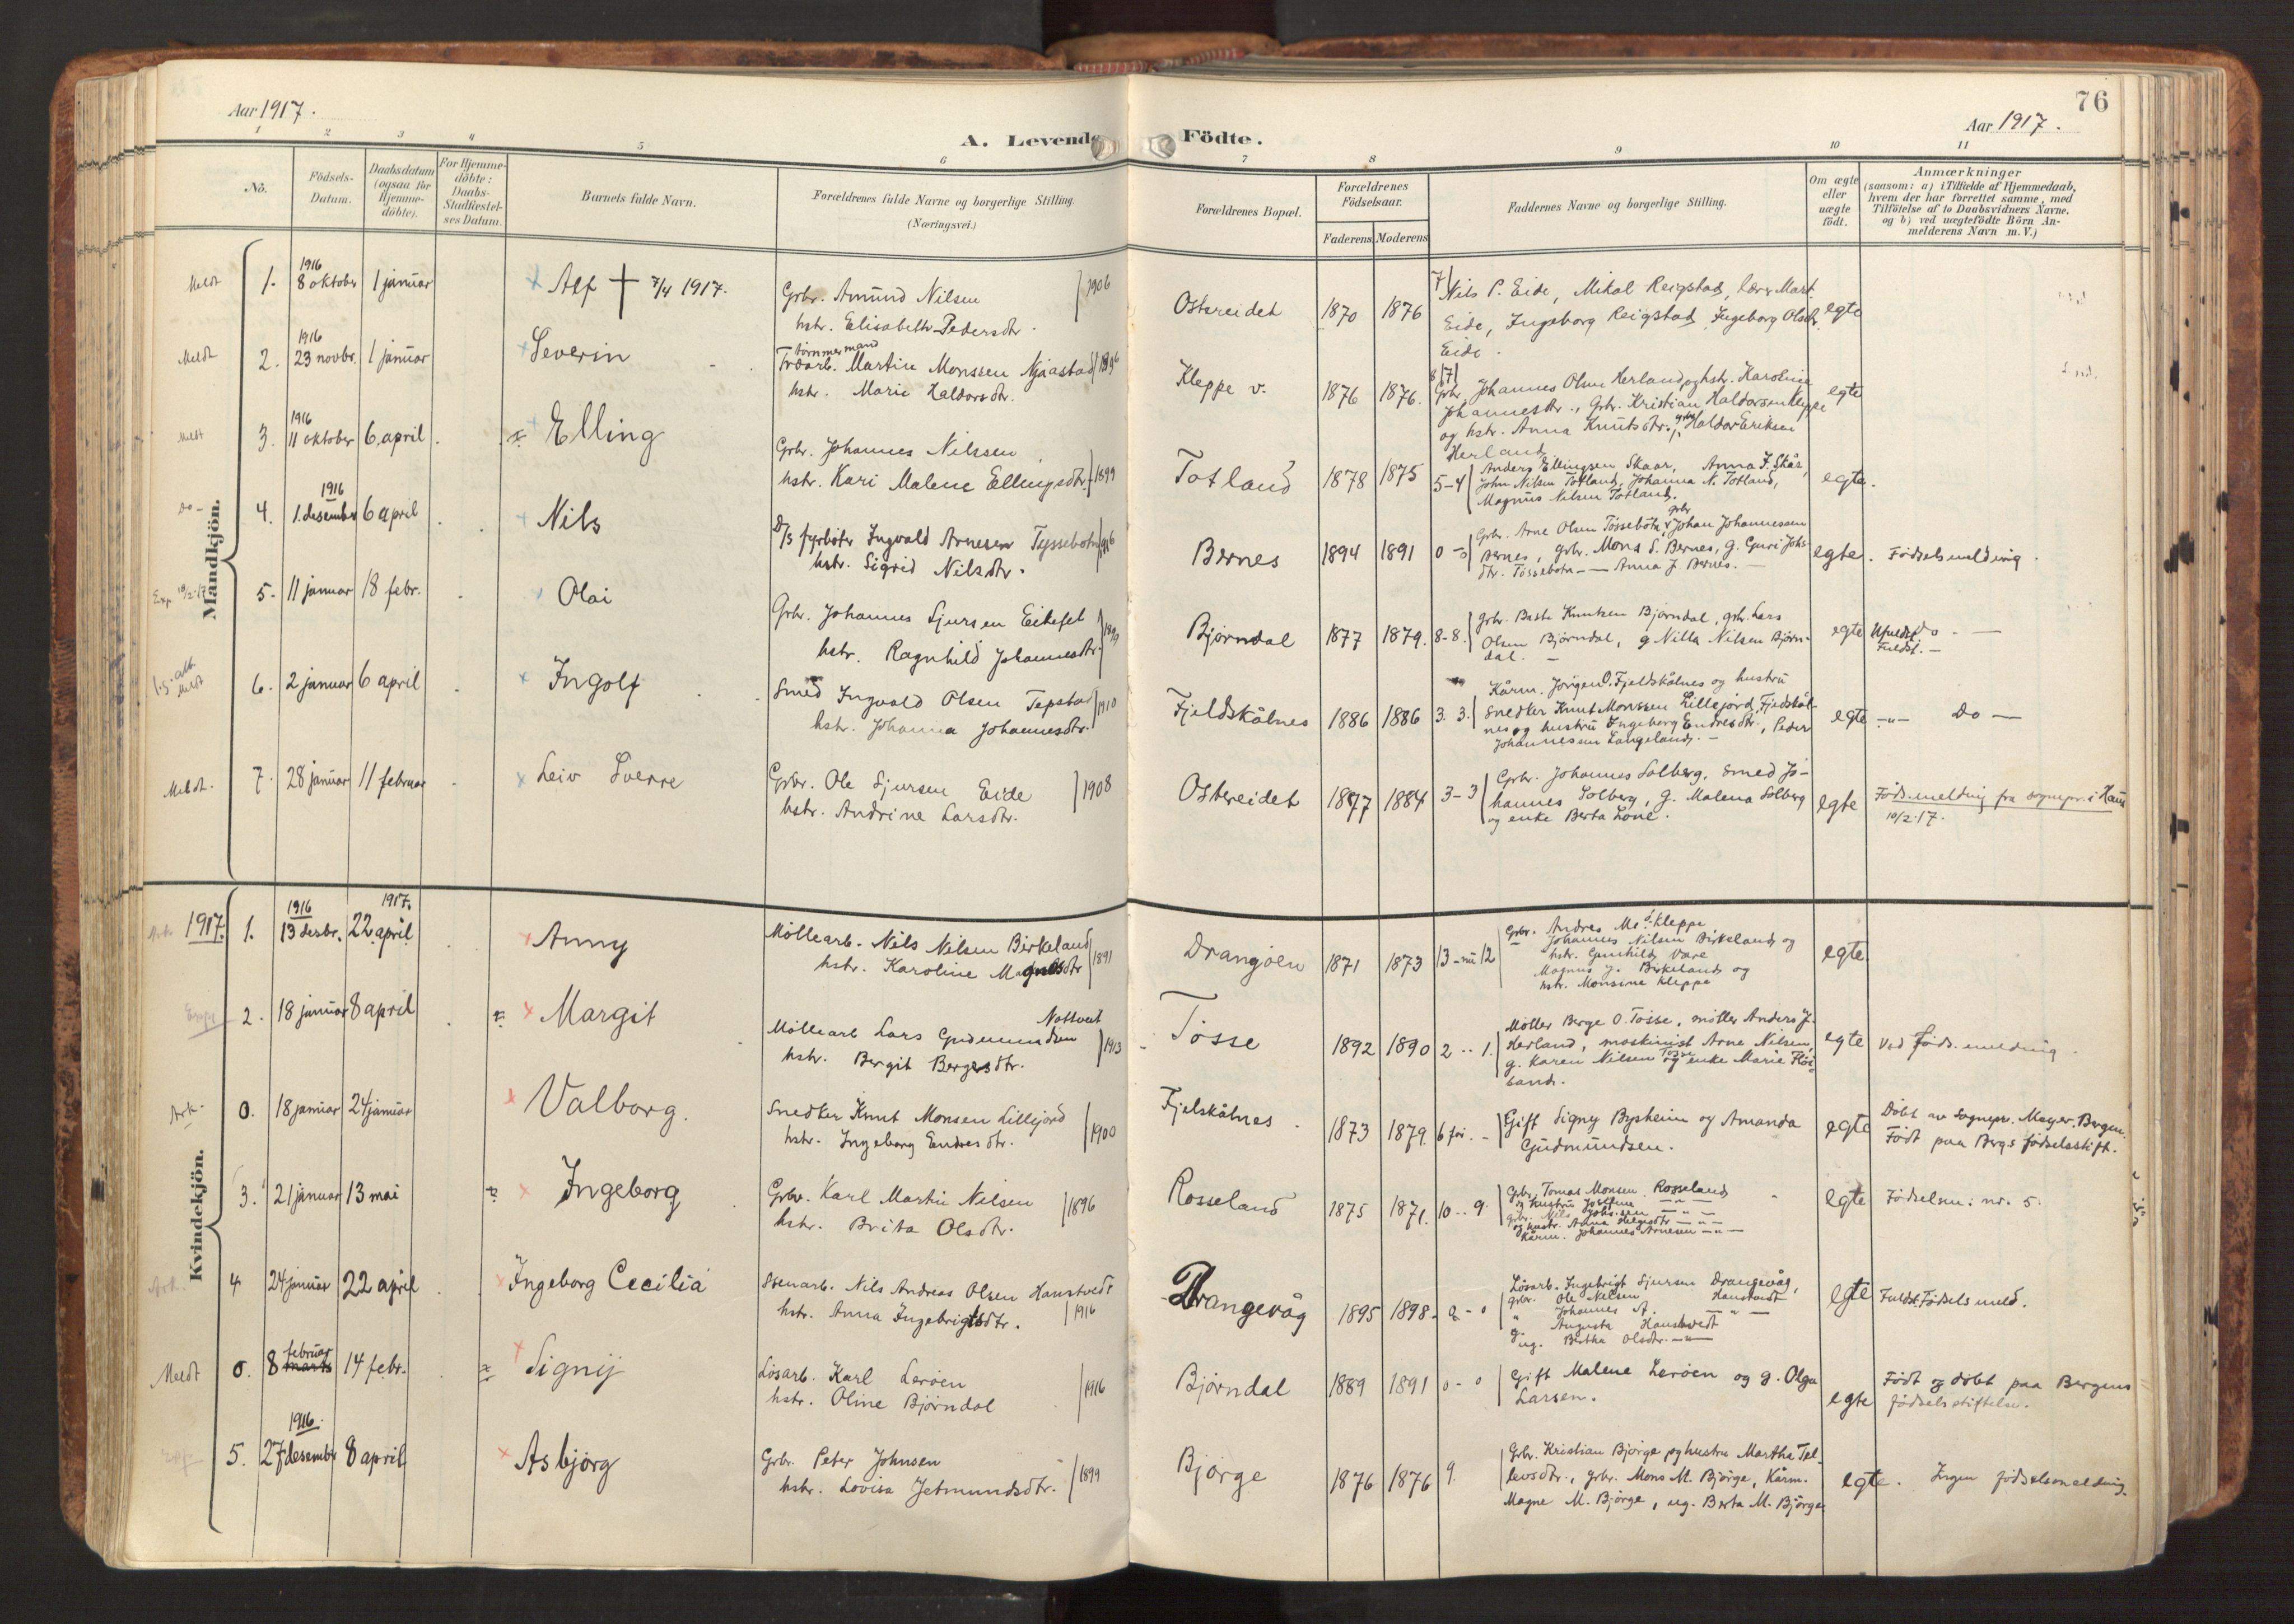 76
Aar 1917.
Aar 1917.
A. Levende Födte.
1 2 3 4 5 6 7 8 9 10 11
No.
Födsels-
Datum.
Daabsdatum
(ogsaa for
Hjemme-
döbte).
For Hjemme-
döbte:
Daabs-
Stadfæstel-
ses Datum.
Barnets fulde Navn.
Forældrenes fulde Navne og borgerlige Stilling.
(Næringsvei.)
Forældrenes Bopæl.
Forældrenes
Födselsaar.
Faderens Moderens
Faddernes Navne og borgerlige Stilling.
Om ægte
eller
uægte
födt.
Anmærkninger
(saasom: a) i Tilfælde af Hjemmedaab,
hvem der har forrettet samme, med
Tilföielse af to Daabsvidners Navne.
og b) ved uægtefödte Börn An-
melderens Navn m. V.)
Mandkjön.
Meldt 1. 1916 8 oktober 1 januar Alf † 7/4 1917.
Grbr. Amund Nilsen 1906
hstr. Elisabeth Pedersdtr.
Ostereidet 1870 1876
7 Nils P. Eide, Mikal Reigstad, lærer Mart.
Eide, Ingeborg Reigstad, Ingeborg Olsdtr.
Eide.
egte
Meldt 2. 1916 23 novbr. 1 januar Severin
tømmermand
Trdarb. Martin Monssen Njaastad 1896
hstr. Marie Haldorsdtr.
Kleppe v. 1876 1876.
8/7 Grbr. Johannes Olsen Herland og hstr. Karoline
Johannesdtr., Grbr. Kristian Haldorsen Kleppe
og hstr. Anna Knutsdtr., grbr. Haldor Eriksen
Herland
egte
Meldt 3. 1916 11 oktober 6 april Elling
Grbr. Johannes Nilssen
hstr. Kari Malene Ellingsdtr. 1899
Totland 1878 1875 5-4
Anders Ellingsen Skaar, Anna J. Skår,
John Nilsen Totland, Johanna N. Totland,
Magnus Nilsen Totland.
egte.
Do 4. 1916 1. desember 6 april Nils
D/s fyrböter Ingvald Arnesen Tyssebotn 1916
hstr. Sigrid Nilsdtr.
Bernes 1894 1891 0-0
Grbr. Arne Olsen Tössebotn, grbr Johan Johannessen
Bernes, grbr. Mons S. Bernes, g. Guri Johs-
dtr. Tössebotn — Anna J. Bernes.
egte. Födselsmelding.
Exp. 18/2-17 5. 11 januar 18 febr. Olai
Grbr. Johannes Sjursen Eikefet 1899
hstr. Ragnhild Johannesdtr.
Bjørndal 1877 1879. 8-8.
Grbr. Baste Knutsen Bjørndal, grbr. Lars
Olsen Bjørndal, g. Nilla Nilsen Bjørn-
dal.
egte do
Fuldst.
Meldt 6. 2 januar 6 april Ingolf
Smed Ingvald Olsen Tepstad 1910
hstr. Johanna Johannesdtr.
Fjeldskålnes 1886 1886 3. 3.
Kårm. Jörgen O. Fjeldskålnes og hustru
Snedker Knut Monssen Lillejord, Fjedskål-
nes og hustru Ingeborg Endresdtr., Peder
Johannessen Langeland.
egte -"- Do —
Meldt. 7. 28 januar 11 februar Leiv Sverre
Grbr. Ole Sjursen Eide 1908
hstr. Andrine Larsdtr.
Ostereidet 1877 1884 3-3
Grbr. Johannes Solberg, smed Jo-
hannes Solberg, g. Malena Solberg
og enke Berta Lone.
egte Föds.melding fra sognepr. i Haus
10/2-17.
Kvindekjön.
1917. 1. 1916 13 desbr. 1917. 22 april Anny
Möllearb. Nils Nilsen Birkeland 1891
hstr. Karoline Magnusdtr
Drangöen 1871 1873 13-nu 12
Grbr. Andres Mo s. Kleppe
Johannes Nilsen Birkeland og
hstr. Gunhild Være
Magnus J. Birkeland og
hstr. Monsine Kleppe
egte.
2. 18 januar 8 april Margit
Nattveit
Möllearb Lars Gudmundsen 1913
hstr. Bergit Bergesdtr.
Tösse 1892 1890 2 .. 1.
Möller Berge O. Tösse, möller Anders J.
Herland, maskinist Arne Nilsen,
g. Karen Nilsen Tösse og enke Marie
land.
egte Ved föds.melding.
Ark. 0. 18 januar 24 januar Valborg.
Snedker Knut Monsen Lillejord 1900
hstr. Ingeborg Endresdtr.
Fjelskålnes 1873 1879. 6 før.
Gift Signy Bysheim og Amanda
Gudmundsen.
egte Döbt av sognepr. Meyer, Bergen.
Födt paa Brgs födselsstift.
3. 21 januar 13 mai Ingeborg
Grbr. Karl Martin Nilsen 1896
hstr. Brita Olsdtr.
Rosseland 1875 1871. 10 .. 9.
Grbr. Tomas Monsen Rosseland
og hustru Josefine —"—
grbr. Nils Johs.sen —"—
og hustr. Anna Helgesdtr —"—
Kårm. Johannes Arnesen —"—
egte Födselsm. nr. 5.
Ark. 4 24 januar 22 april Ingeborg Cecilia
Stenarb. Nils Andreas Olsen Hanstvedt
hstr. Anna Ingebrigtsdtr. 1916
Drangevåg 1895 1898.
Lösarb. Ingebrigt Sjursen Drangevåg,
grbr. Ole Nilsen Hanstvedt
" Johannes A. —"—
g. Augusta Hanstvedt
ug. Bertha Olsdtr. —"—
egte Fuldst. Födselsmeld.
Meldt 0. 8 februar marts 14 febr. Signij
Lösarb. Karl Leröen 1916
hstr. Oline Björndal
Björndal 1889 1891 0-0
Gift Malene Leröen og g. Olga
Larsen.
egte Födt og döbt paa Bergens
födselsstiftelse.
5. 1916. 27 desember 8 april Asbjörg
Grbr. Peter Johnsen 1899
hstr. Lovisa Jetmundsdtr.
Bjørge 1876 1876 9.
Grbr. Kristian Bjørge og hustru Martha Tel-
levsdtr., grbr. Mons M. Bjørge, Kårm.
Magne M. Bjørge, ug. Berta M. Bjørge
egte. Ingen födselsmelding.